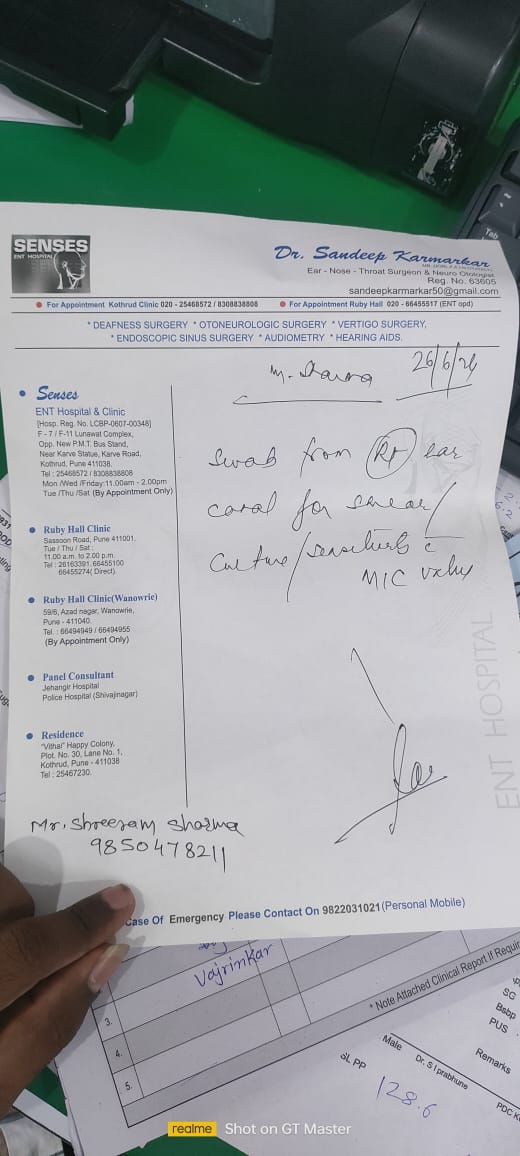 SENSES
ENT HOSPITAL
Dr. Sandeep Karmarkar
Ear - Nose - Throat Surgeon & Neuro Otologist
Reg. No. 63605
sandeepkarmarkar50@gmail.com
For Appointment Kothrud Clinic 020 - 25468572 / 8308838808
For Appointment Ruby Hall 020 - 66455517 (ENT opd)
* DEAFNESS SURGERY * OTONEUROLOGIC SURGERY * VERTIGO SURGERY,
* ENDOSCOPIC SINUS SURGERY * AUDIOMETRY * HEARING AIDS.
M. Sharma
26/6/24
Swab from Rt ear
canal for smear/
Culture/sensitivity c
MIC value
Senses
ENT Hospital & Clinic
[Hosp. Reg. No. LCBP-0607-00348]
F - 7 / F-11 Lunawat Complex,
Opp. New P.M.T. Bus Stand,
Near Karve Statue, Karve Road,
Kothrud, Pune 411038.
Tel : 25468572 / 8308838808
Mon /Wed /Friday:11.00am - 2.00pm
Tue /Thu /Sat (By Appointment Only)
Ruby Hall Clinic
Sassoon Road, Pune 411001.
Tue / Thu / Sat :
11.00 a.m. to 2.00 p.m.
Tel : 26163391, 66455100
66455274( Direct).
Ruby Hall Clinic(Wanowrie)
59/6, Azad nagar, Wanowrie,
Pune - 411040.
Tel. : 66494949 / 66494955
(By Appointment Only)
Panel Consultant
Jehangir Hospital
Police Hospital (Shivajinagar)
Residence
"Vithai" Happy Colony,
Plot. No. 30, Lane No. 1,
Kothrud, Pune - 411038
Tel : 25467230.
ENT HOSPITAL
Mr. Shreeram Sharma
9850478211
Case Of Emergency Please Contact On 9822031021(Personal Mobile)
Vajrinkar
3.
4.
5.
* Note Attached Clinical Report If
Male
Dr. S I prabhune
PP
128.6
SG
Bsbp
PUS
Remarks
PDC
Tab
realme Shot on GT Master